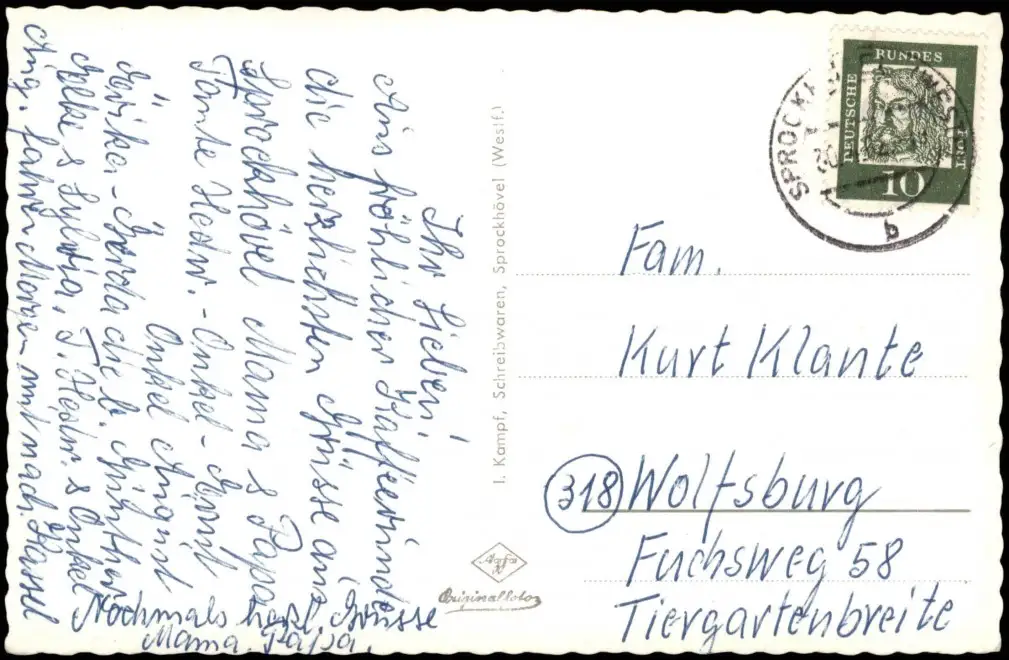 Ihr Lieben!
Aus fröhlicher Kaffeerunde
die herzlichsten Grüsse aus
Sprockhövel Mama & Papa
Tante Hedw. - Onkel -
Onkel August
die
& Sylvia, T. Hedw. & Onkel
Aug. fahren Morgen mit nach Kassel
Nochmals herzl. Grüsse
Mama. Papa.
I. Kampf, Schreibwaren, Sprockhövel (Westf.)
Agfa
Originalfoto
DEUTSCHE
BUNDES
POST
10
SPROCKHÖVEL (WESTF)
b
Fam.
Kurt Klante
318 Wolfsburg
Fuchsweg 58
Tiergartenbreite